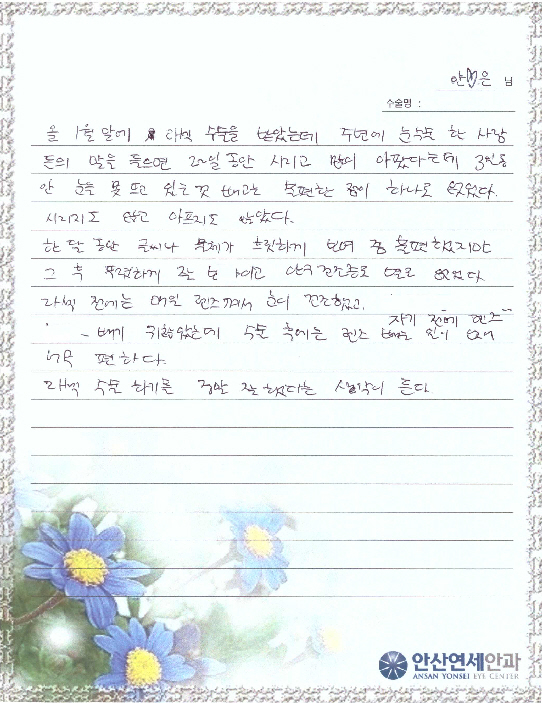 안♥은 님
수술명 :
올 1월달에 라섹 수술을 받았는데 주변에 눈수술 한 사람
들의 말을 들으면 20일 동안 시리고 많이 아팠다는데 3일동
안 눈을 못 뜨고 있는 것 빼고는 불편한 점이 하나도 없었다.
시리지도 않고 아프지도 않았다.
한 달 동안 글씨나 물체가 흐릿하게 보여 좀 불편했지만
그 후 뚜렷하게 잘 보이고 안구건조증도 별로 없었다
라섹 전에는 매일 렌즈껴서 눈이 건조했고,
자기 전에 렌즈
빼기 귀찮았는데 수술 후에는 렌즈 빼는 일이 없어
너무 편하다.
라섹 수술 하기를 정말 잘 했다는 생각이 든다
안산연세안과
ANSAN YONSEI EYE CENTER